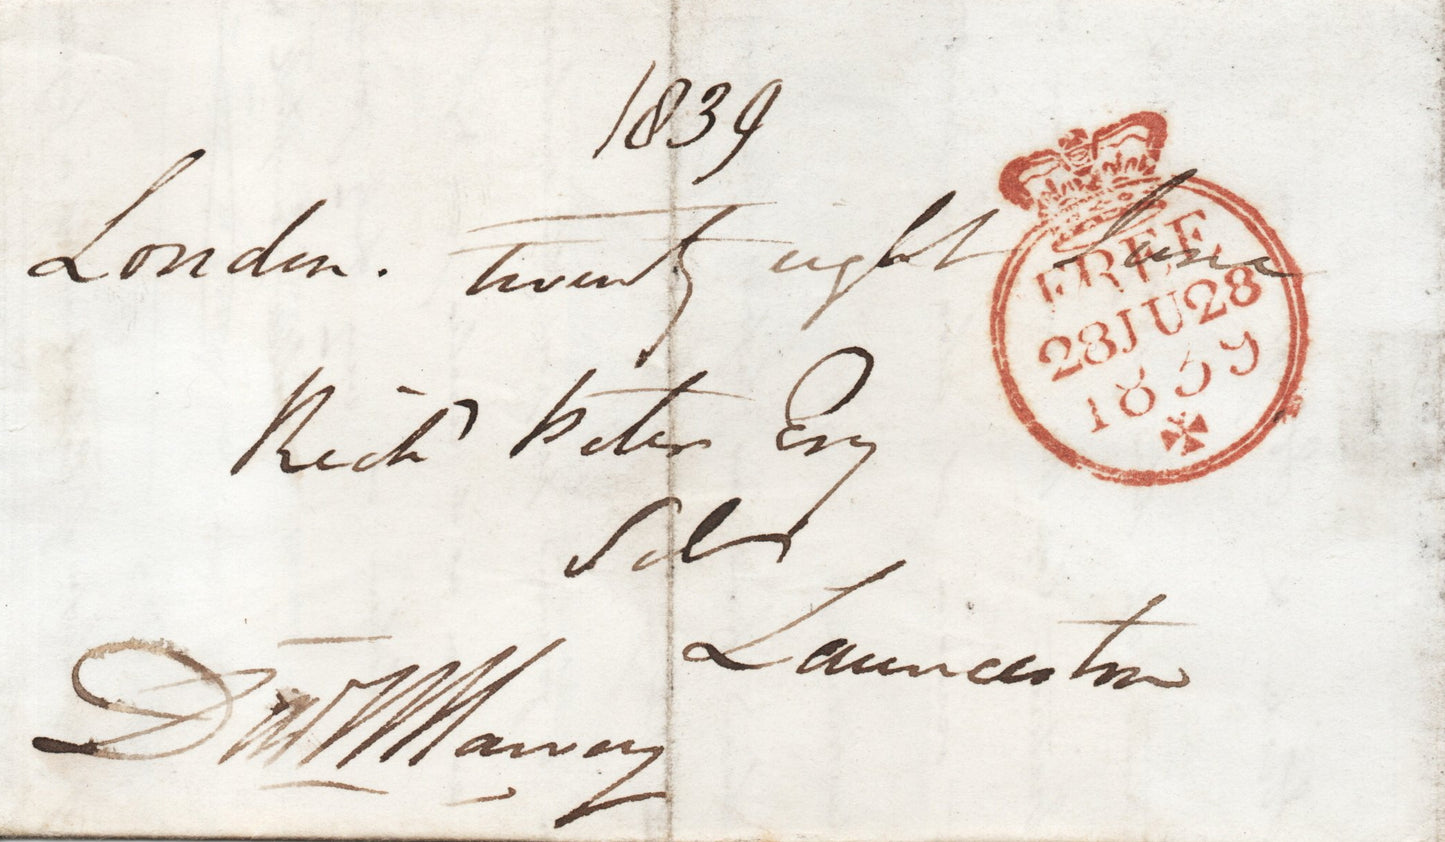 1839
London. twenty eight June
Richd Peter Esq
Solr
Launceston
FREE
28JU28
1839